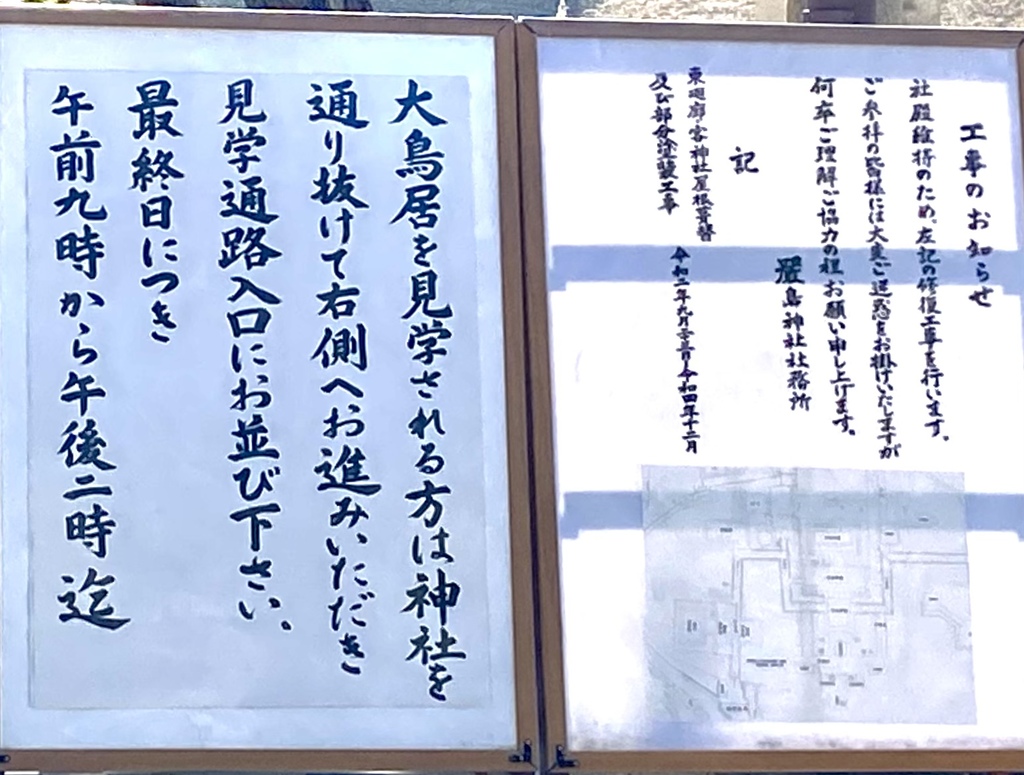 工事のお知らせ
社殿維持のため、左記の修復工事を行います。
ご参拝の皆様には大変ご迷惑をお掛けいたしますが
何卒ご理解ご協力の程お願い申し上げます。
厳島神社社務所
記
東廻廊・宮神社屋根葺替
及び部分塗装工事
令和二年九月 令和四年十二月
大鳥居を見学される方は神社を
通り抜けて右側へお進みいただき
見学通路入口にお並び下さい。
最終日につき
午前九時から午後二時迄